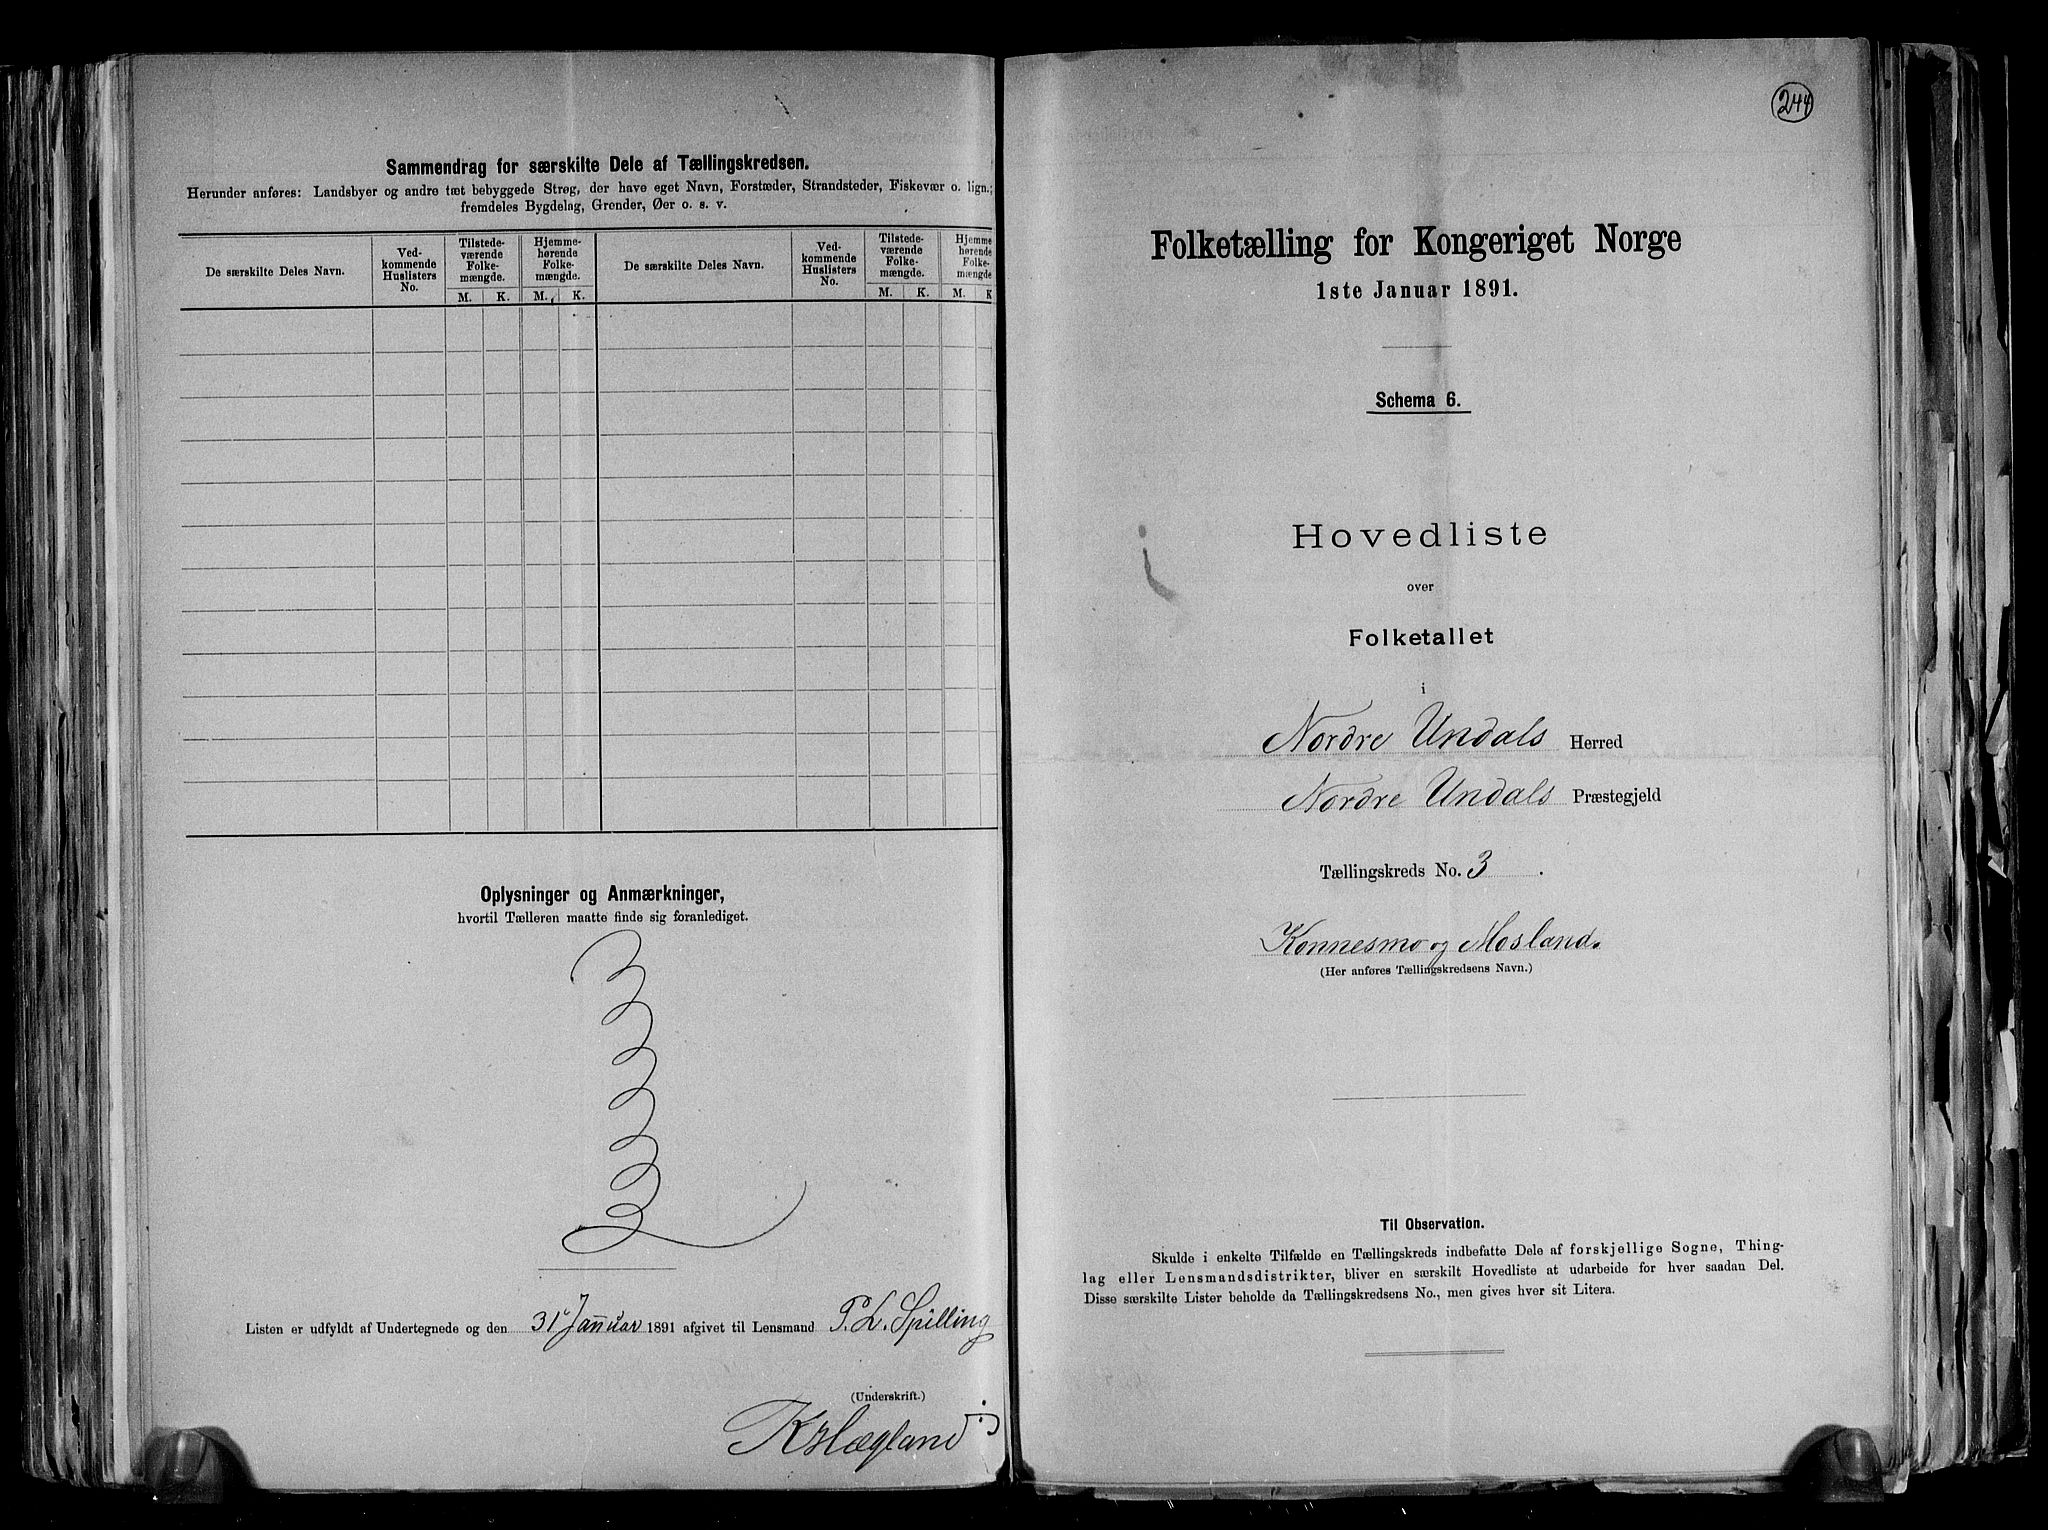 Sammendrag for særskilte Dele af Tællingskredsen.
Herunder anføres: Landsbyer og andre tæt bebyggede Strøg, der have eget Navn, Forstæder, Strandsteder, Fiskevær o. lign.;
fremdeles Bygdelag, Grender, Øer o. s. v.
De særskilte Deles Navn.
Ved-
kommende
Huslisters
No.
Tilstede-
værende
Folke-
mængde.
Hjemme-
hørende
Folke-
mængde.
M. K. M. K.
De særskilte Deles Navn.
Ved-
kommende
Huslisters
No.
Tilstede-
værende
Folke-
mængde.
Hjemme
hørende
Folke-
mængde
M. K. M. K
Oplysninger og Anmærkninger,
hvortil Tælleren maatte finde sig foranlediget.
Listen er udfyldt af Undertegnede og den 31 Januar 1891 afgivet til Lensmand P. L. Spilling
(Underskrift.)
Hægland
244
Folketælling for Kongeriget Norge
1ste Januar 1891.
Schema 6.
Hovedliste
over
Folketallet
i
Nordre Undals Herred
Nordre Undals Præstegjeld
Tællingskreds No. 3.
Konnesmo og Mosland.
(Her anføres Tællingskredsens Navn.)
Til Observation.
Skulde i enkelte Tilfælde en Tællingskreds indbefatte Dele af forskjellige Sogne, Thing-
lag eller Lensmandsdistrikter, bliver en særskilt Hovedliste at udarbeide for hver saadan Del.
Disse særskilte Lister beholde da Tællingskredsens No., men gives hver sit Litera.